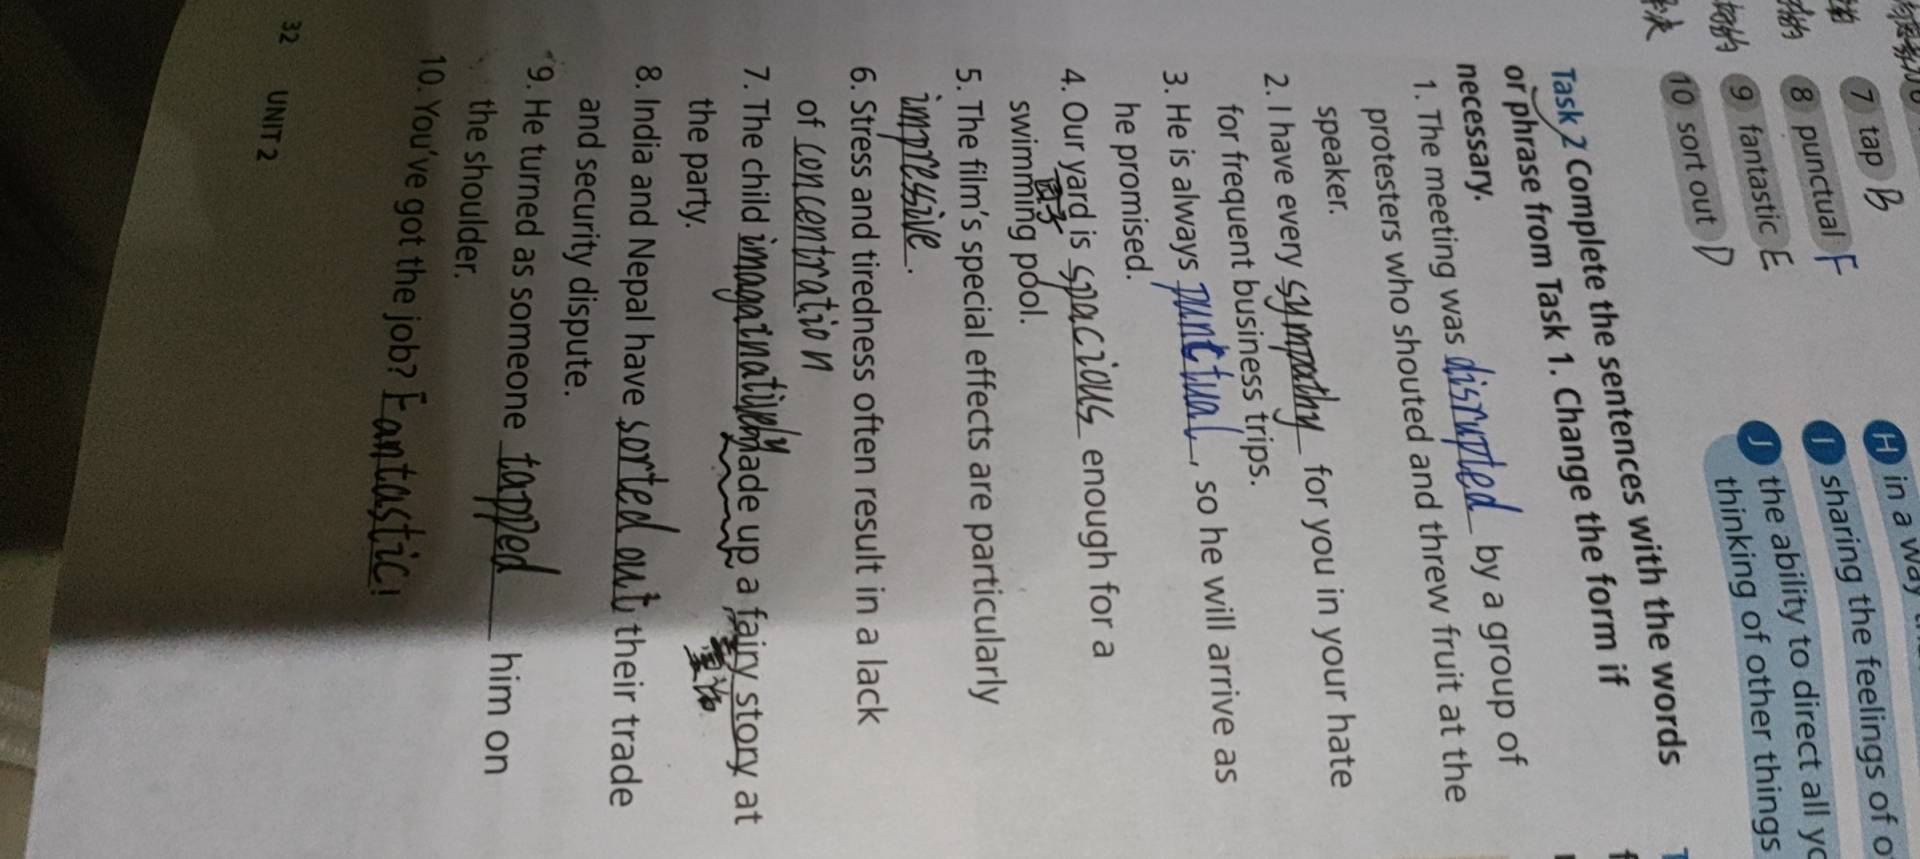 7 tap B
8 punctual F
9 fantastic E
10 sort out D
H in a way
I sharing the feelings of o
J the ability to direct all yo
thinking of other things
Task 2 Complete the sentences with the words
or phrase from Task 1. Change the form if
necessary.
1. The meeting was disrupted by a group of
protesters who shouted and threw fruit at the
speaker.
2. I have every sympathy for you in your hate
for frequent business trips.
3. He is always punctual, so he will arrive as
he promised.
4. Our yard is spacious enough for a
院子
swimming pool.
5. The film's special effects are particularly
impressive.
6. Stress and tiredness often result in a lack
of concentration
7. The child imaginatively made up a fairy story at
the party.
8. India and Nepal have sorted out their trade
and security dispute.
9. He turned as someone tapped him on
the shoulder.
10. You've got the job? Fantastic!
32 UNIT 2